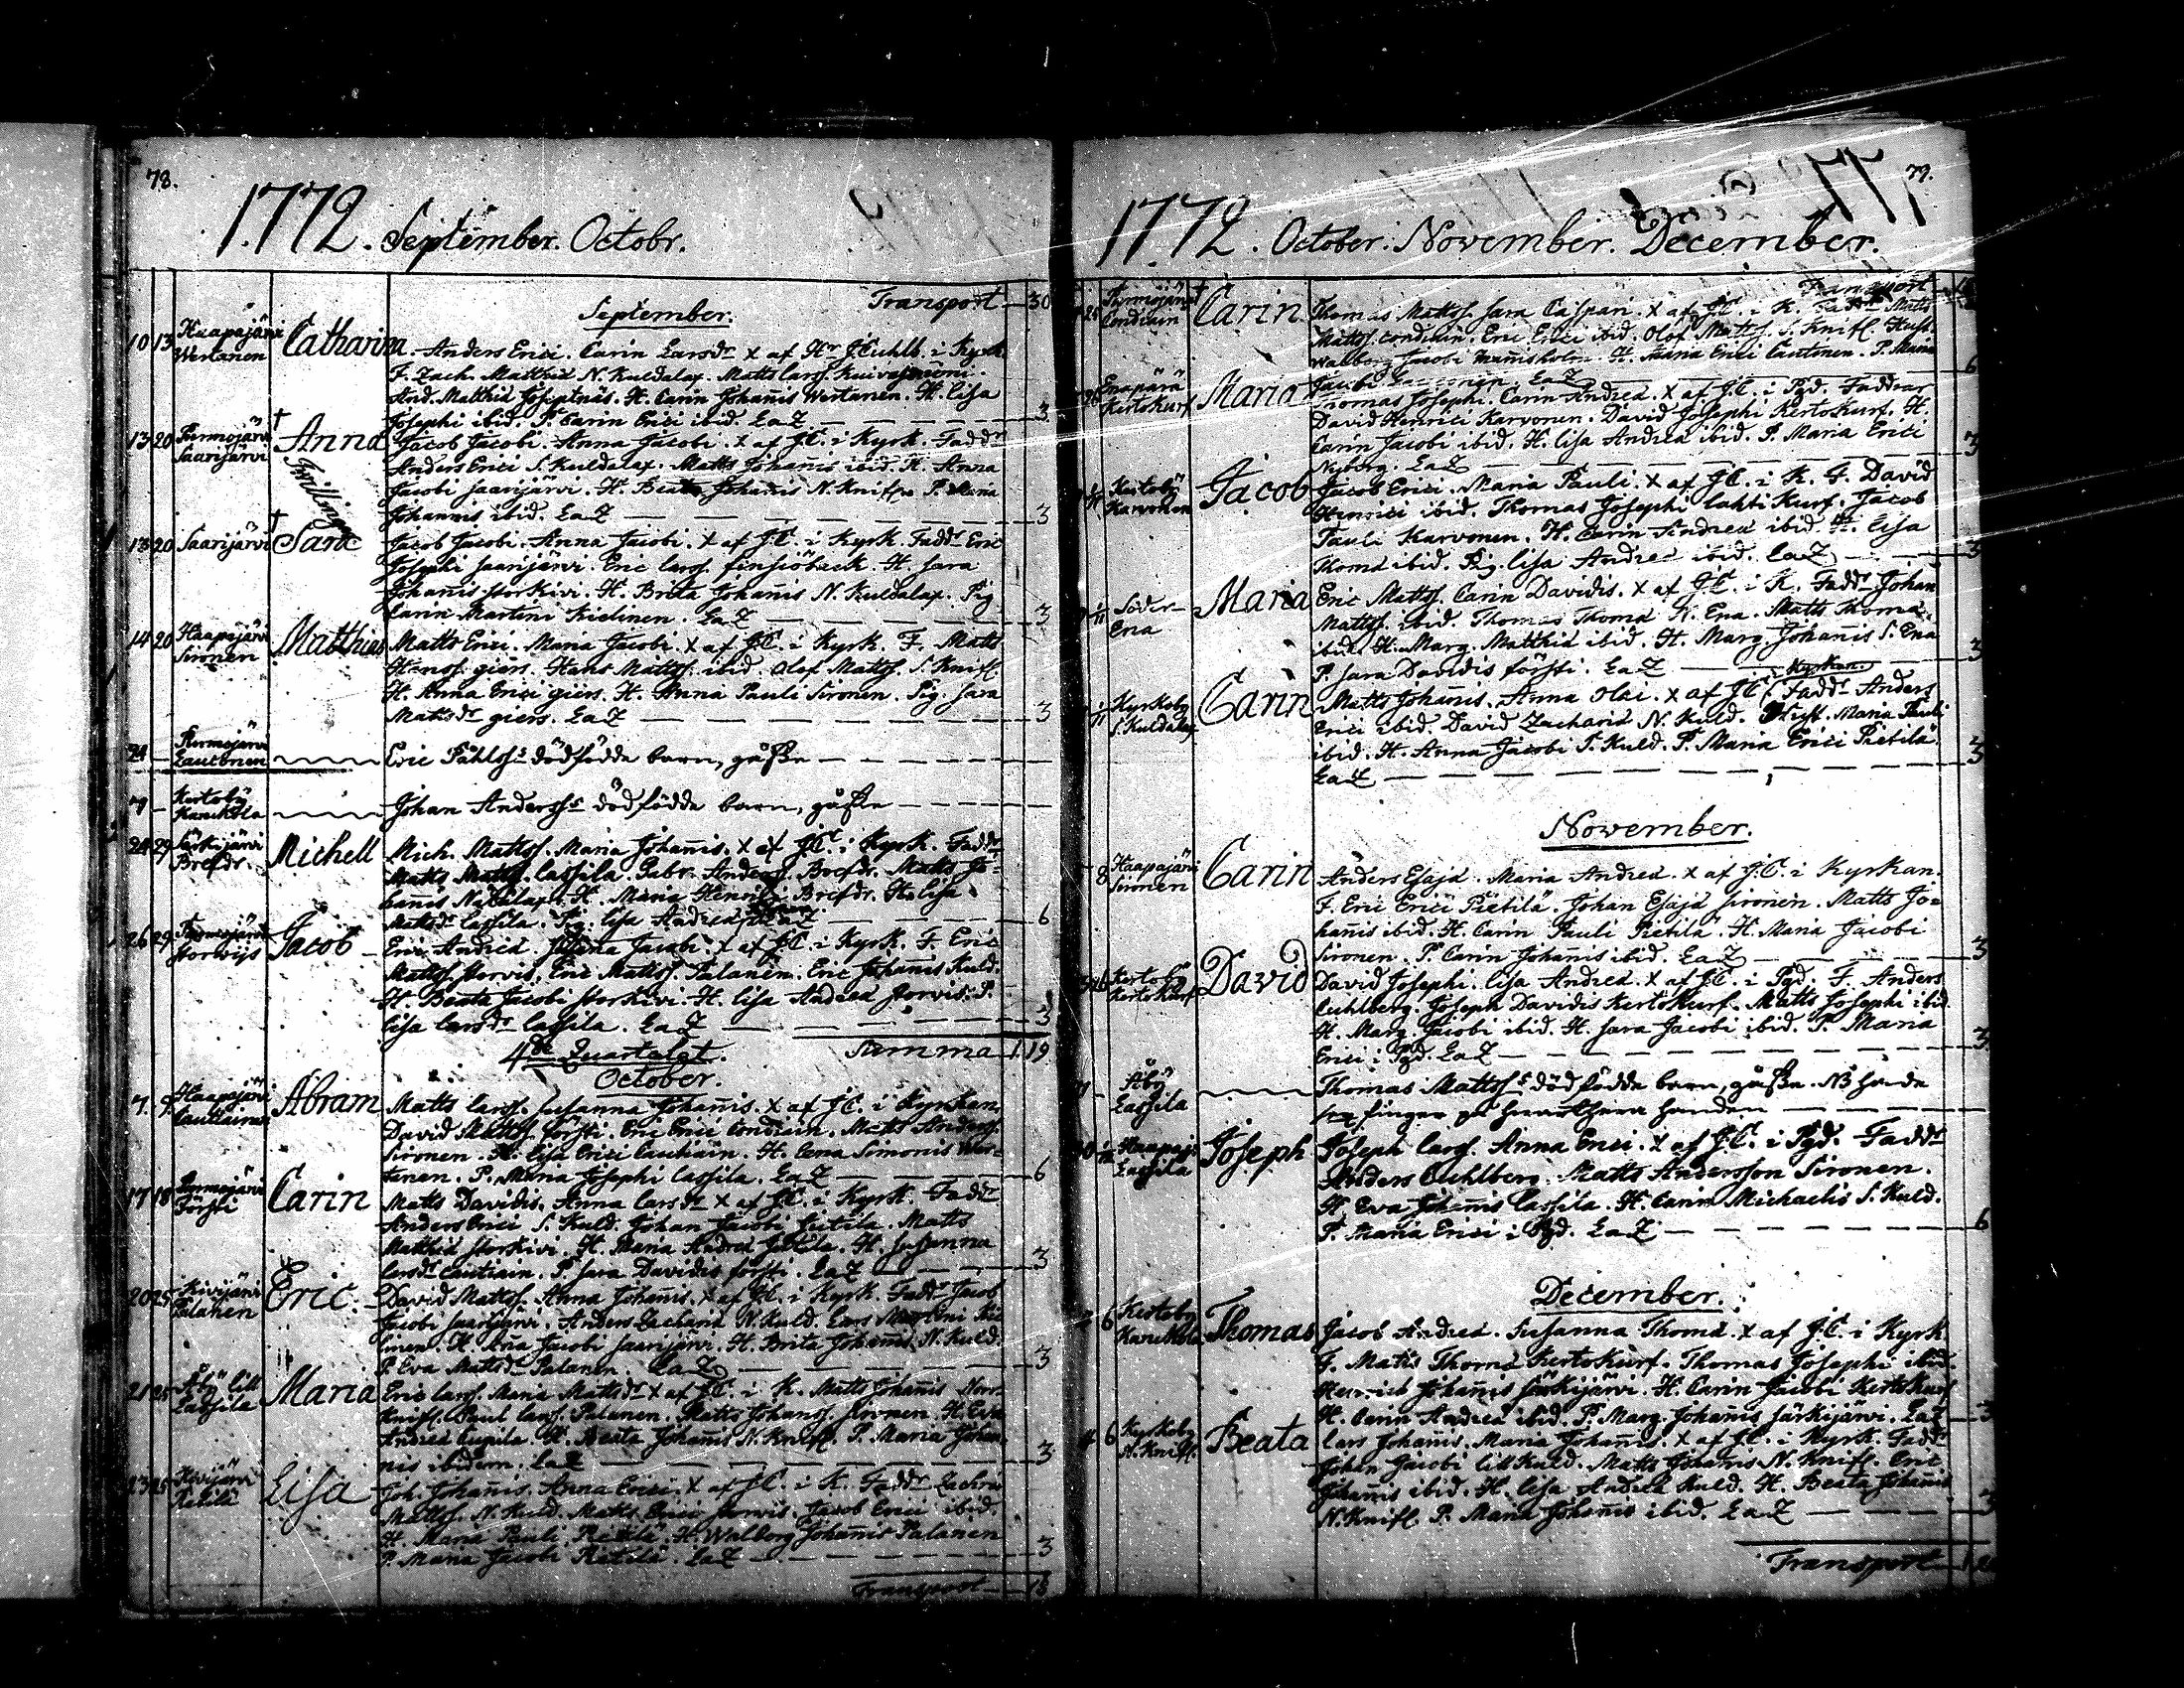 78.
1772. September. Octobr.
Transport 30
September.
10 13 Haapajärvi Wertanen Catharina. Anders Erici. Carin Larsdr x af Hr J Cuhlb. i Kyrk.
F. Zach. Matthiæ N. Kuldalax. Matts Larss.
And. Matthiæ. H. Carin Johañis Wertanen. H. Lisa
Josephi ibid. P. Carin Erici ibid. LaZ 3
13 20 Purmojärvi Saarijärvi † Anna Jacob Jacobi. Anna Jacobi. x af J.C. i Kyrk. Faddr
Anders Erici S. Kuldalax. Matts Johañis ibid. H. Anna
Jacobi Saarijärvi. H. Beata Johañis N. Knifl. P. Maria
Johannis ibid. LaZ 3
Twillingar
13 20 Saarijärvi † Sara Jacob Jacobi. Anna Jacobi. x af J.C. i Kyrk. Faddr Eric
Josephi Saarijärvi. Eric Larss. Finsiöback. H. Sara
Johañis Storkivi. H. Brita Johañis N. Kuldalax. Pig.
Carin Martini Kidinen. LaZ 3
14 20 Haapajärvi Sironen Matthias Matts Erici. Maria Jacobi. x af J.C. i Kyrk. F. Matts
Hanss. giers. Hans Mattss. ibid. Olof Mattss. S. Knifl.
H. Anna Erici giers. H. Anna Pauli Sironen. Pig. Sara
Mattsdr giers. LaZ 3
24 Purmojärvi Lautonen Eric Påhlss. dödfödde barn, gåsse
7 Kertoby Kanckola Johan Anderss. dödfödde barn, gåsse
24 29 Särkijärvi Brefdr. Michell Mich. Mattss. Maria Johañis. x af J.C. i Kyrk. Faddr
Matts Mattss. Lassila. Gabr. Anderss. Brefdr. Matts Jo-
hañis. H. Maria Henrici Brefdr. H. Lisa
Mattsdr Lassila. Pig. Lisa Andreæ LaZ 6
26 29 Purmojärvi Storwijs Jacob Eric Andreæ. Jacobi x af J.C. i Kyrk. F. Eric
Mattss. Storvis. Eric Mattss. Palanen. Eric Johañis Kuld.
H. Beata Jacobi Storkivi. H. Lisa Andreæ Storvis. P.
Lisa Larsdr Lassila. LaZ 3
4de Quartalet. Summa 1 19
October.
7. 9. Haapajärvi Cautiainen Abram Matts Larss. Susanna Johañis. x af J.C. i Kyrkan.
David Mattss. Försti. Eric Erici Condiain. Matts Anderss.
Sironen. H. Lisa Erici Cautiain. H. Lena Simonis Wer-
tanen. P. Maria Josephi Lassila. LaZ 6
17 18 Purmojärvi Försti Carin Matts Davidis. Anna Larsdr x af J.C. i Kyrk. Faddr
Anders Erici S. Kuld. Johan Jacobi. Matts
Matthiæ Storkivi. H. Maria Andreæ. H. Susanna
Larsdr Cautiain. P. Sara Davidis Försti. LaZ 3
20 25 Kivijärvi Palanen Eric. David Mattss. Anna Johañis. x af J.C. i Kyrk. Faddr Jacob
Jacobi Saarijärvi. Anders Zachariæ N. Kuld. Lars Martini Ki-
linen. H. Aña Jacobi Saarijärvi. H. Brita Johañis N. Kuld.
P. Eva Mattsdr Palanen. LaZ 3
21 25 Åby Lill Lassila Maria Eric Larss. Maria Mattsdr x af J.C. i K. Matts Johañis Norr-
Knifl. Paul Larss. Palanen. Matts Johanss. Sironen. H. Eva
Andreæ. H. Beata Johañis N. Knifl. P. Maria Johan-
nis ibidem. LaZ 3
23 25 Kivijärvi Pietilä Lisa Joh. Johañis. Anna Erici. x af J.C. i K. Faddr Zachris
Mattss. N. Kuld. Matts Erici Storvis. Jacob Erici ibid.
H. Maria Pauli Pietilä. H. Walborg Johañis Palanen
P. Maria Jacobi Pietilä. LaZ 3
Transport 18
79.
1772. October. November. December.
Transport 18
25 Purmojärvi Condiain † Carin Thomas Mattss. Sara Caspari. x af J.C. i K. Faddr Matts
Mattss. Condiain. Eric Erici ibid. Olof Mattss. S. Knifl. Hust.
Walborg Jacobi. H. Maria Erici Cautonen. P. Maria
Jacobi. LaZ 6
Enapärä Kertokurf Maria Thomas Josephi. Carin Andreæ. x af J.C. i Pgd. Faddrar
David Henrici Karvonen. David Josephi Kertokurf. H.
Carin Jacobi ibid. H. Lisa Andreæ ibid. P. Maria Erici
Nyborg. LaZ 3
Kertoby Karvonen Jacob Jacob Erici. Maria Pauli. x af J.C. i K. F. David
Henrici ibid. Thomas Josephi Lahti Kurf. Jacob
Pauli Karvonen. H. Carin Andreæ ibid. H. Lisa
Thomæ ibid. Pig. Lisa Andreæ ibid. LaZ 3
Söder-Ena Maria Eric Mattss. Carin Davidis. x af J.C. i K. Faddr Johan
Mattss. ibid. Thomas Thomæ N. Ena. Matts Thomæ
ibid. H. Marg. Matthiæ ibid. H. Marg. Johañis S. Ena
P. Sara Davidis Försti. LaZ 3
Kyrkoby S. Kuldalax Carin Matts Johañis. Anna Olai. x af J.C. i Kyrkan. Faddr Anders
Erici ibid. David Zachariæ N. Kuld. Hust. Maria Pauli
ibid. H. Anna Jacobi S. Kuld. P. Maria Erici Pietilä. 3
LaZ
November.
8 Haapajärvi Sironen Carin Anders Esajæ. Maria Andreæ. x af J.C. i Kyrkan.
F. Eric Erici Pietilä. Johan Esajæ Sironen. Matts Jo-
hañis ibid. H. Carin Pauli Pietilä. H. Maria Jacobi
Sironen. P. Carin Johañis ibid. LaZ 3
Kertoby Kertokurf David David Josephi. Lisa Andreæ. x af J.C. i Pgd. F. Anders
Cuhlberg. Joseph Davidis Kertokurf. Matts Josephi ibid.
H. Marg. Jacobi ibid. H. Sara Jacobi ibid. P. Maria
Erici i Pgd. LaZ 3
Åby Lassila Thomas Mattss. dödfödde barn, gåsse. NB hade
sex finger på hanothera handen
30 Haapaj. Lassila Joseph Joseph Larss. Anna Erici. x af J.C. i Pgd. Faddr
Anders Cuhlberg. Matts Andersson Sironen.
H. Eva Johañis Lassila. H. Carin Michaelis S. Kuld.
P. Maria Erici i Pgd. LaZ 6
December.
6 Kertoby Kanckola Thomas Jacob Andreæ. Susanna Thomæ. x af J.C. i Kyrk
F. Matts Thomæ Kertokurf. Thomas Josephi ibid.
Henrich Johañis Särkijärvi. H. Carin Jacobi Kertokurf
H. Carin Andreæ ibid. P. Marg. Johañis Särkijärvi. LaZ 3
4 6 Kyrkoby N. Knifl. Beata Lars Johañis. Maria Johañis. x af J.C. i Kyrk. Faddr
Johan Jacobi Lill Kuld. Matts Johañis N. Knifl. Eric
Johañis ibid. H. Lisa Andreæ Kuld. H. Beata Johañis
N. Knifl. P. Maria Johañis ibid. LaZ 3
Transport 1